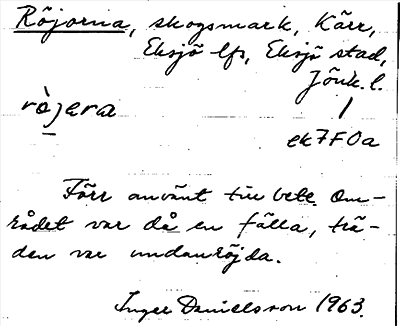 Röjorna, skogsmark, Kärr,
Eksjö lfs, Eksjö stad,
Jönk. l.
ròjera
ek7F0a
Förr använt till bete. Om-
rådet var då en fälla, trä-
den var undanröjda.
Inger Danielsson 1963.